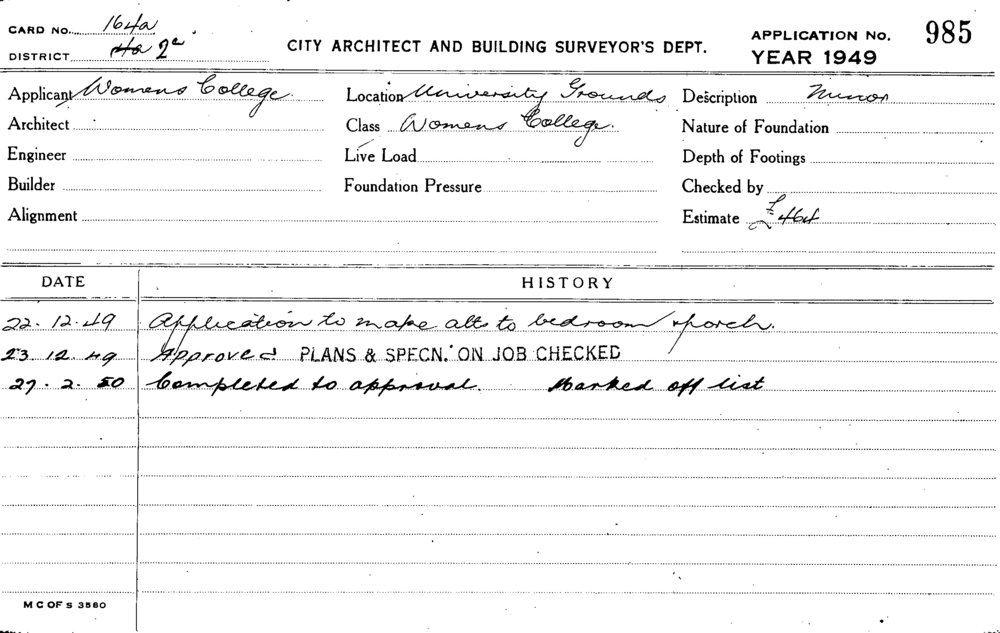 CARD NO. 164a
DISTRICT 4a 2a
CITY ARCHITECT AND BUILDING SURVEYOR'S DEPT.
APPLICATION NO. 985
YEAR 1949
Applicant Womens College. Location University Grounds Description Minor
Architect Class Womens College. Nature of Foundation
Engineer Live Load Depth of Footings
Builder Foundation Pressure Checked by
Alignment Estimate £464
DATE HISTORY
22. 12. 49 Application to make alts to bedroom & porch.
23. 12. 49 Approved PLANS & SPECN. ON JOB CHECKED
27. 2. 50 Completed to approval. Marked off list
M C OF S 3560